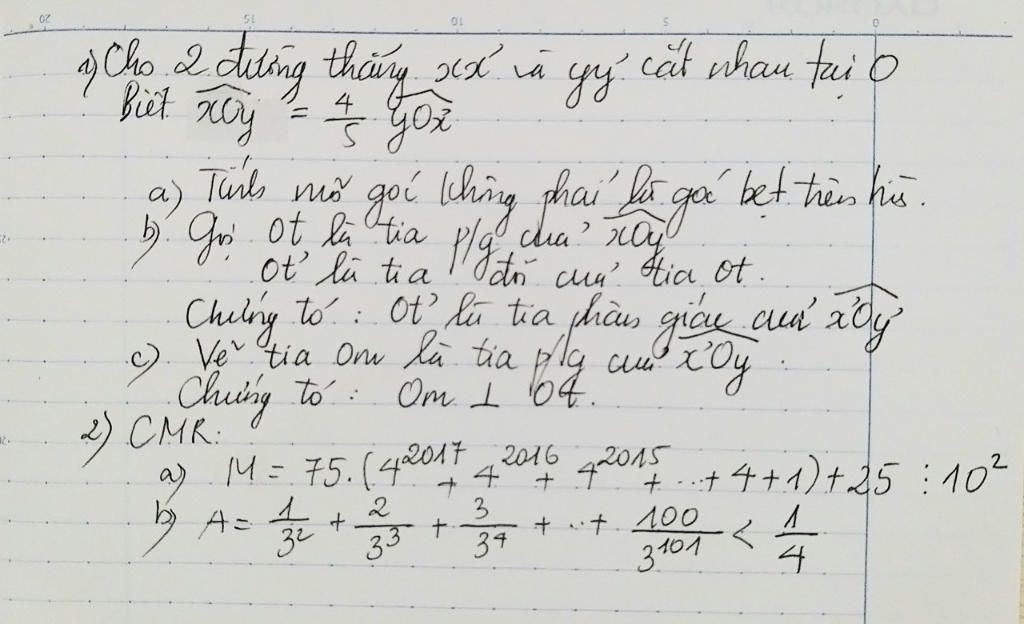 1) Cho 2 đường thẳng xx' và yy' cắt nhau tại O
Biết xOy = 4/5 yOx'
a) Tính mỗi góc không phải là góc bẹt trên hình.
b) Gọi Ot là tia p/g của xOy
Ot' là tia đối của tia Ot.
Chứng tỏ : Ot' là tia phân giác của x'Oy'
c) Vẽ tia Om là tia p/g của x'Oy.
Chứng tỏ : Om ⊥ Ot.
2) CMR:
a) M = 75.(4^2017 + 4^2016 + 4^2015 + ... + 4 + 1) + 25 ⋮ 10^2
b) A = 1/3^2 + 2/3^3 + 3/3^4 + ... + 100/3^101 < 1/4